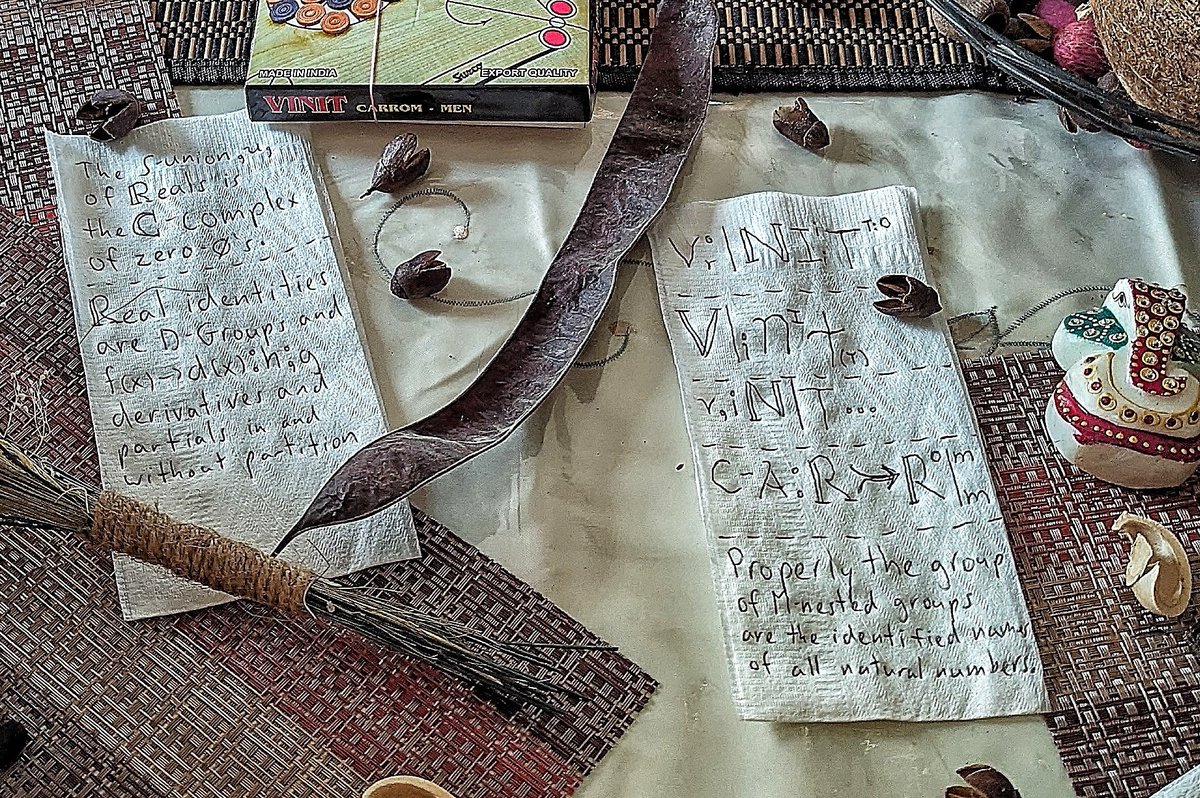 MADE IN INDIA
EXPORT QUALITY
VINIT CARROM - MEN
The S-union,u,
of ℝeals is
the ℂ-complex
of zero-∅'s:
ℝeal identities
are D-Groups and
f(x)→d(x):h;g
derivatives and
partials in and
without partition
V|in
r,iN|T...
C-A:ℝ→ℝ°|m m
Properly the group
of M-nested groups
are the identified names
of all natural numbers.